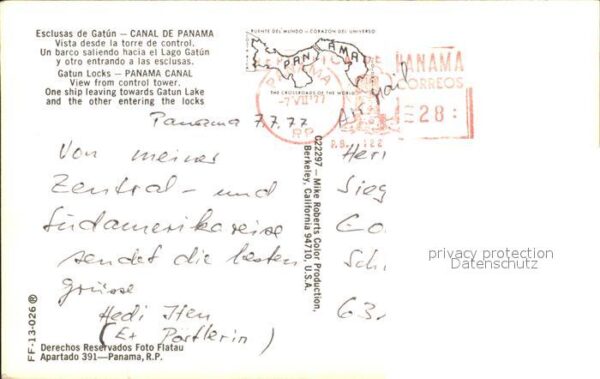 Esclusas de Gatún — CANAL DE PANAMA
Vista desde la torre de control.
Un barco saliendo hacia el Lago Gatún
y otro entrando a las esclusas.
Gatun Locks — PANAMA CANAL
View from control tower.
One ship leaving towards Gatun Lake
and the other entering the locks
PUENTE DEL MUNDO - CORAZON DEL UNIVERSO
PANAMA
THE CROSSROADS OF THE WORLD
PANAMA
-7 VII 77
R.P.
DE PANAMA
CORREOS
28
P.B. 122
Air Mail
Panama 7.7.77
Von meiner
Zentral- und
Südamerikareise
sendet die besten
grüsse
Hedi Iten
(Ex Pörtlerin)
C22297 — Mike Roberts Color Production,
Berkeley, California 94710, U.S.A.
Herr
Sieg
Go
Sch
privacy protection
Datenschutz
FF-13-026 ®
Derechos Reservados Foto Flatau
Apartado 391—Panama, R.P.